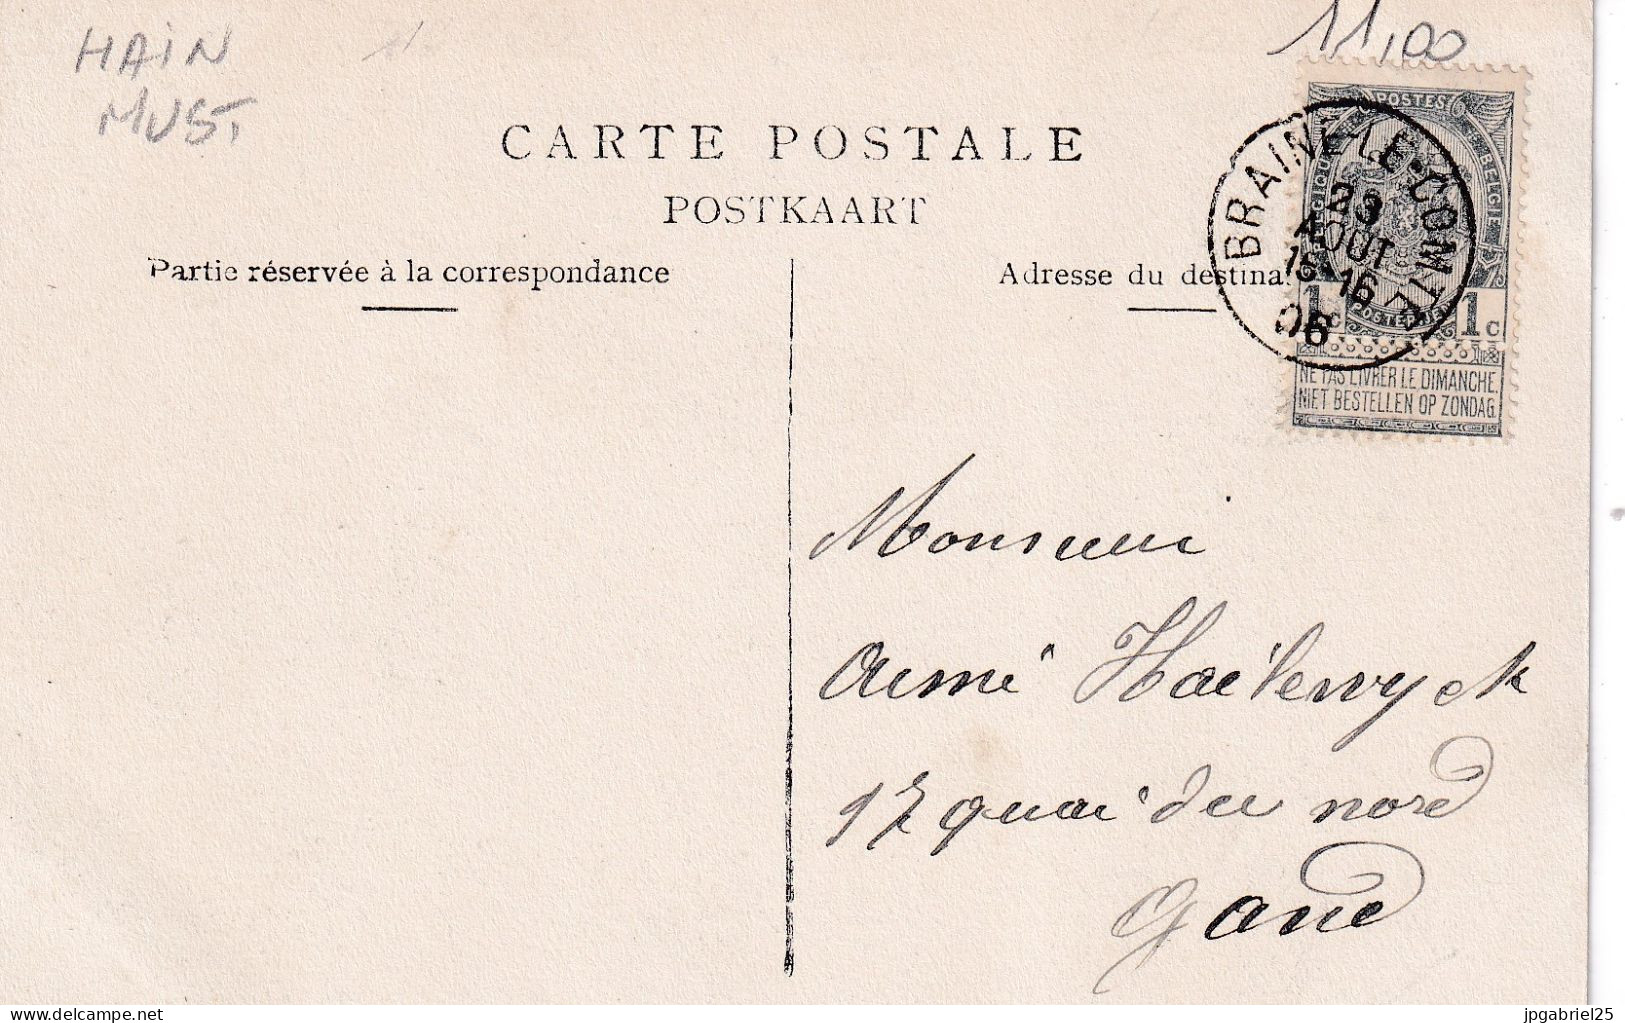 HAIN
MUST
11,00
CARTE POSTALE
POSTKAART
Partie réservée à la correspondance
Adresse du destina
POSTES
BELGIE
BRAINE-LE-COMTE
23
AOUT
15-16
06
1c 1c
NE PAS LIVRER LE DIMANCHE.
NIET BESTELLEN OP ZONDAG.
Monsieur
Aimé
17 quai du nord
Gand
www.delcampe.net
jpgabriel25